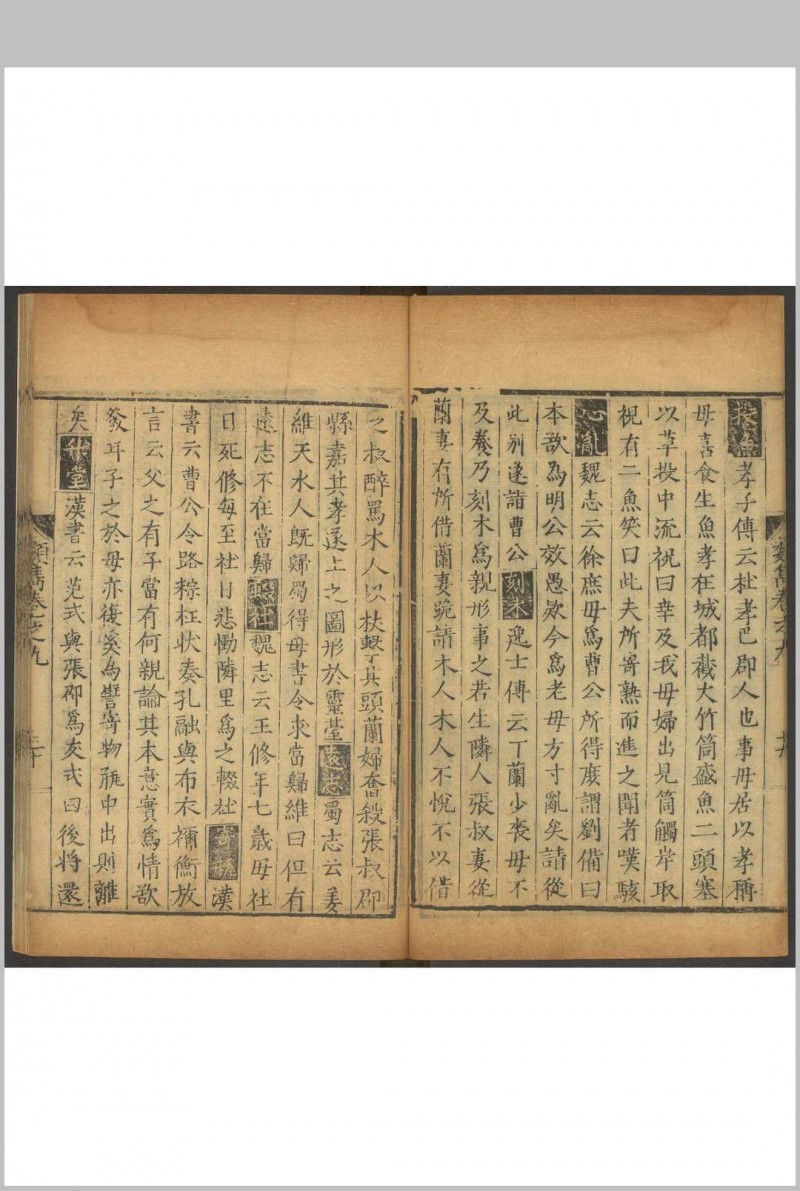 投魚孝子傳云杜孝巴郡人也事母居以孝稱
母喜食生魚孝在城都截大竹筒盛魚二頭塞
以草投中流祝曰幸及我母婦出見筒觸岸取
視有二魚笑曰此夫所寄熟而進之聞者嘆駭
心亂魏志云徐庶母爲曹公所得庶謂劉備曰
本欲爲明公效愚欵今爲老母方寸亂矣請從
此别遂詣曹公刻木逸士傳云丁蘭少喪母不
及養乃刻木爲親形事之若生隣人張叔妻從
蘭妻有所借蘭妻跪請木人木人不悅不以借
之叔醉罵木人以杖其頭蘭婦奮殺張叔郡
縣嘉其孝遂上之圖形於靈臺遠志蜀志云姜
維天水人旣歸蜀得母書令求當歸維曰但有
遠志不在當歸輟社魏志云王修年七歲母社
日死修每至社日悲慟隣里爲之輟社寄漢
書云曹公令路粽枉状奏孔融與布衣禰衡放
言云父之有子當有何親論其本意實爲情欲
發耳子之於母亦復奚為譬寄物瓶中出則離
矣升堂漢書云范式與張邵爲友式曰後將還
類雋卷之九
類雋卷之九